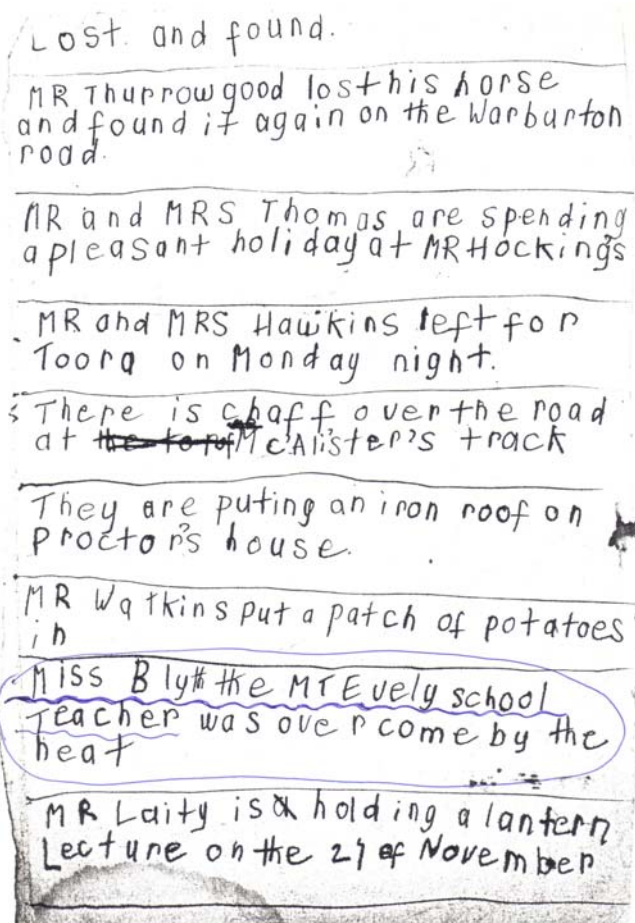 Lost and found.
MR Thurrowgood lost his horse
and found it again on the Warburton
road.
MR and MRS Thomas are spending
a pleasant holiday at MR Hocking's
MR and MRS Hawkins left for
Toora on Monday night.
There is chaff over the road
at McAlister's track
They are puting an iron roof on
Proctor's house.
MR Watkins put a patch of potatoes
in
Miss Blyth the MT Evely school
Teacher was over come by the
heat
MR Laity is holding a lantern
Lecture on the 27 of November